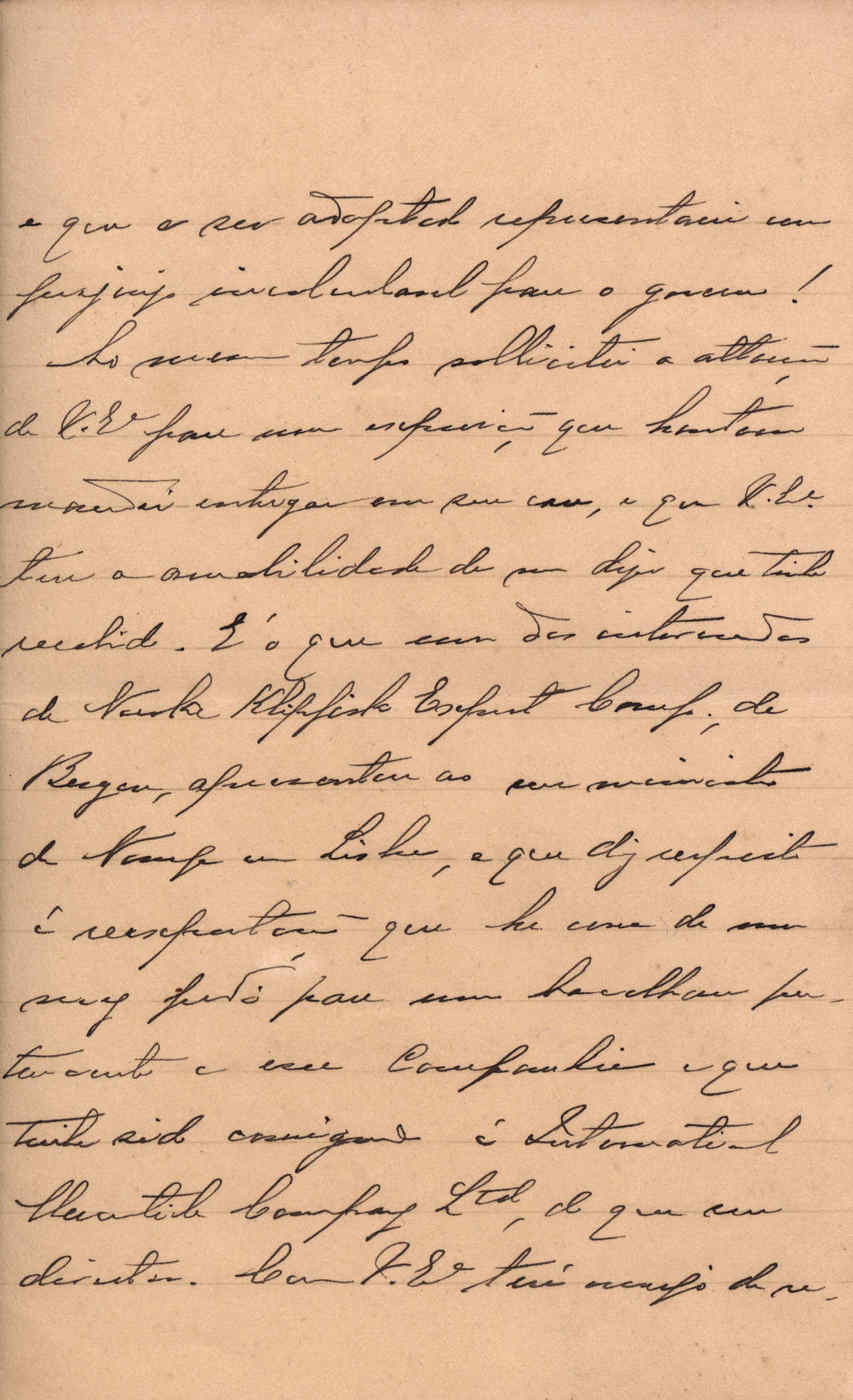 e que a ser adoptado representaria um
prejuizo incalculavel para o governo!
Ao mesmo tempo sollicitei a attenção
de V. Exª para uma exposição que hontem
mandei entregar em sua casa, e que V. Exª
teve a amabilidade de me dizer que tinha
recebido. É o que um dos interessados
da Norske Klipfisk Export Comp., de
Bergen, apresentou ao seu ministro
da Noruega em Lisboa, e que diz respeito
á reexportação que ha cerca de um
mez pedi para um bacalhau per-
tencente a essa Companhia e que
tinha sido consignado á International
Mercantile Company Ltd, de que sou
director. Como V. Exª terá occasião de ve-